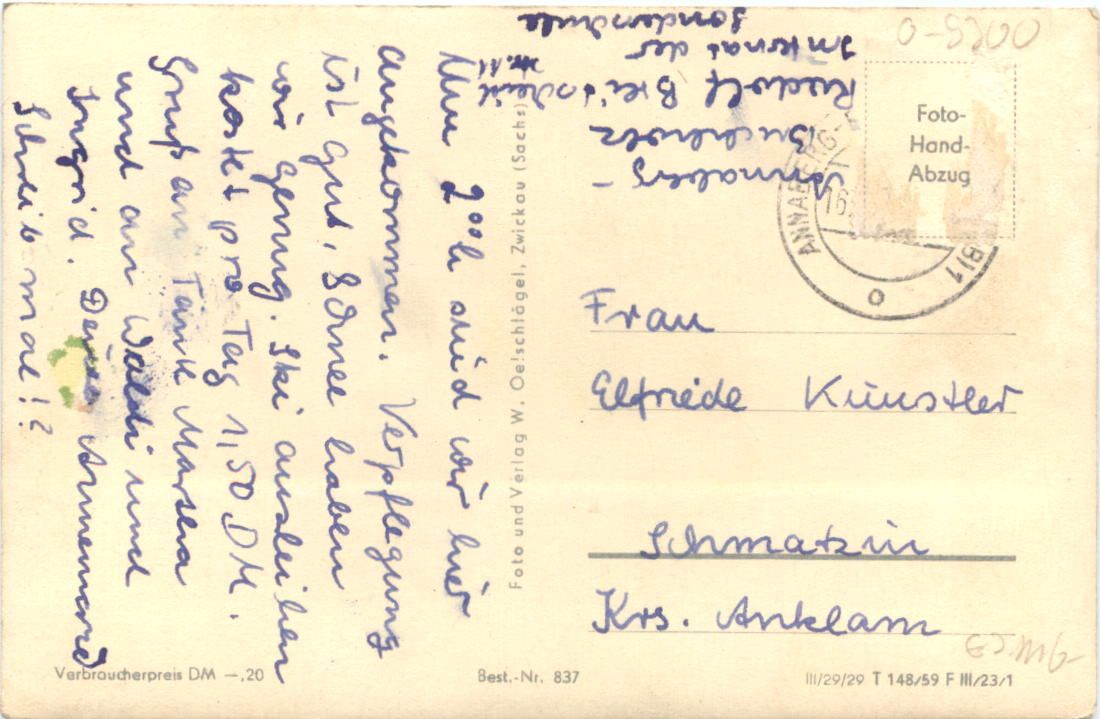 Um 2ºº h sind wir hier
angekommen. Verpflegung
ist gut, Schnee haben
wir genug. Ski ausleihen
kostet pro Tag 1,50 DM.
Gruß an Tante
und an Waldi und
Ingrid. Deine Annemarie
Schreib mal!?
Annaberg-
Buchholz
Rudolf Breitscheid
Str. 11
Internat der
Sonderschule
Foto-
Hand-
Abzug
ANNABERG-
16.
Frau
Elfriede Künstler
Schmatzin
Krs. Anklam
Foto und Verlag W. Oelschlägel, Zwickau (Sachs)
Verbraucherpreis DM —,20
Best.-Nr. 837
III/29/29 T 148/59 F III/23/1